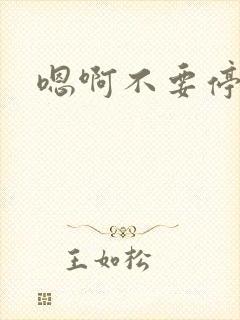 嗯啊不要停
王如松